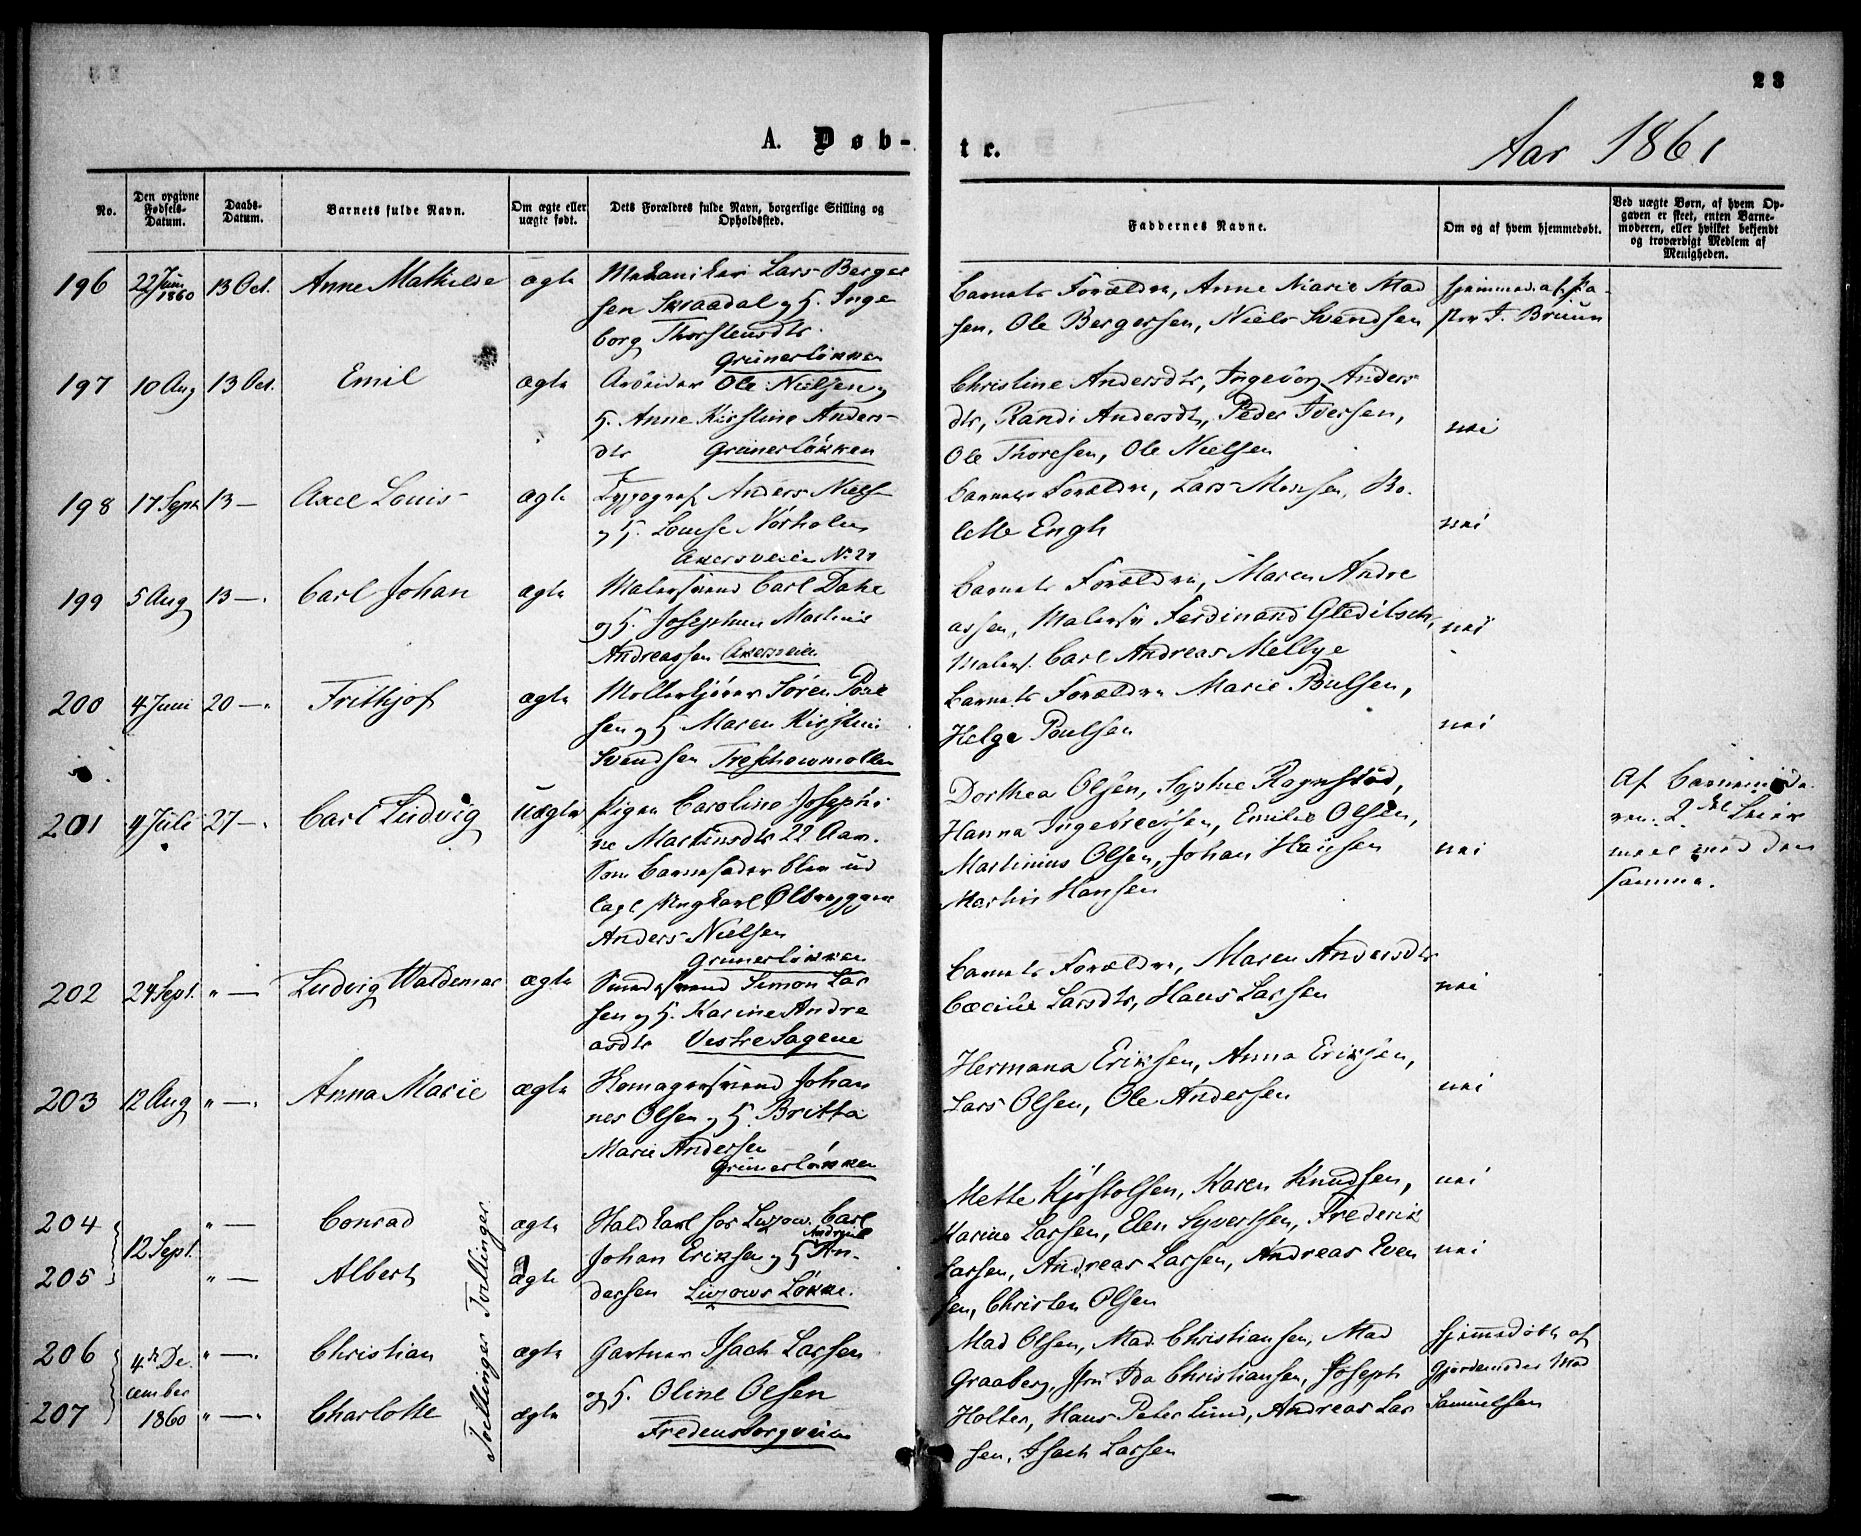 23
A. Døb-
te.
Aar 1861
No.
Den opgivne Fødsels-Datum.
Daabs-Datum.
Barnets fulde Navn.
Om ægte eller uægte født.
Dets Forældres fulde Navn, borgerlige Stilling og Opholdssted.
Faddernes Navne.
Om og af hvem hjemmedøbt.
Ved uægte Børn, af hvem Opgaven er skeet, enten Barnemoderen, eller hvilket bekjendt og troværdigt Medlem af Menigheden.
196 22 Juni 1860 13 Oct. Anne Mathilde ægte
Mekaniker Lars Berger
sen Skraadal og H. Inge
borg Thorstensdtr.
Grünerløkken
Barnets Forældre, Anne Marie Mad
sen, Ole Bergersen, Niels Svendsen
Hjemmed. af Pa-
stor J. Bruun
197 10 Aug 13 Oct. Emil ægte
Arbeider Ole Nielsen og
H. Anne Kirstine Anders-
dtr Grünerløkken
Christine Andersdtr, Ingeborg Anders
dtr, Randi Andersdtr, Peder Iversen,
Ole Thoresen, Ole Nielsen
nei
198 17 Sept 13 — Axel Louis ægte
Typograf Anders Niels
og H. Louise Nørholm
Akersveien No. 21
Barnets Forældre, Lars Monsen, Bo-
lette Engh
nei
199 5 Aug 13 — Carl Johan ægte
Malersvend Carl Dahl
og H. Josephine Mathie
Andreassen Akersveien
Barnets Forældre, Maren Andre
assen, Malersv Ferdinand Gleditsch,
Malers. Carl Andreas Mellye
nei
200 4 Juni 20 — Frithjof ægte
Møllebygger Søren Poul
sen og H Maren Kirstine
Svendsen Treschowmøllen
Barnets Forældre Marie Poulsen,
Helge Poulsen
nei
201 4 Juli 27 — Carl Ludvig Uægte
Pigen Caroline Josephi
ne Martinsdtr 22 Aar.
Som Barnefader blev ud
lagt Ungkarl Ølbrygger
Anders Nielsen
Grünerløkken
Dorthea Olsen, Sophie Ragnstød,
Hanna Ingebretsen, Emilie Olsen,
Martinius Olsen, Johan Hansen
Martin Hansen
nei
Af Barnemode
ren. 2det Leier
maal med den
samme.
202 24 Sept. " — Ludvig Waldemar ægte
Smedsvend Simon Lar
sen og H. Karine Andre
asdtr Vestre Sagene
Barnets Forældre, Maren Andersdtr
Cæcilie Larsdtr, Hans Larsen
nei
203 12 Aug " — Anna Marie ægte
Skomagersvend Johan
nes Olsen og H. Britta
Marie Andersen
Grünerløkken
Hermana Eriksen, Anna Eriksen,
Lars Olsen, Ole Andersen
nei
204 " — Conrad ægte
12 Sept.
205 " — Albert ægte
Tvillinger
Staldkarl hos Luzow Carl
Johan Eriksen og H Andrine An-
dersen Luzows Løkke.
Mette Kjøstolsen, Karen Knudsen,
Karine Larsen, Elen Syvertsen, Frederik
Larsen, Andreas Larsen, Andreas Even
sen, Christen Olsen
nei
nei
206 " — Christian ægte
4de De.
cember
1860
207 " — Charlotte ægte
Tvillinger
Gartner Isach Larsen
og H. Oline Olsen
Fredensborgveien
Mad Olsen, Mad. Christiansen, Mad
Graaberg, Fru Ida Christiansen, Joseph
Holter, Hans Peter Lund, Andreas Lar
sen, Isach Larsen
Hjemmedøbte af
Gjordemoder Mad
Samuelsen